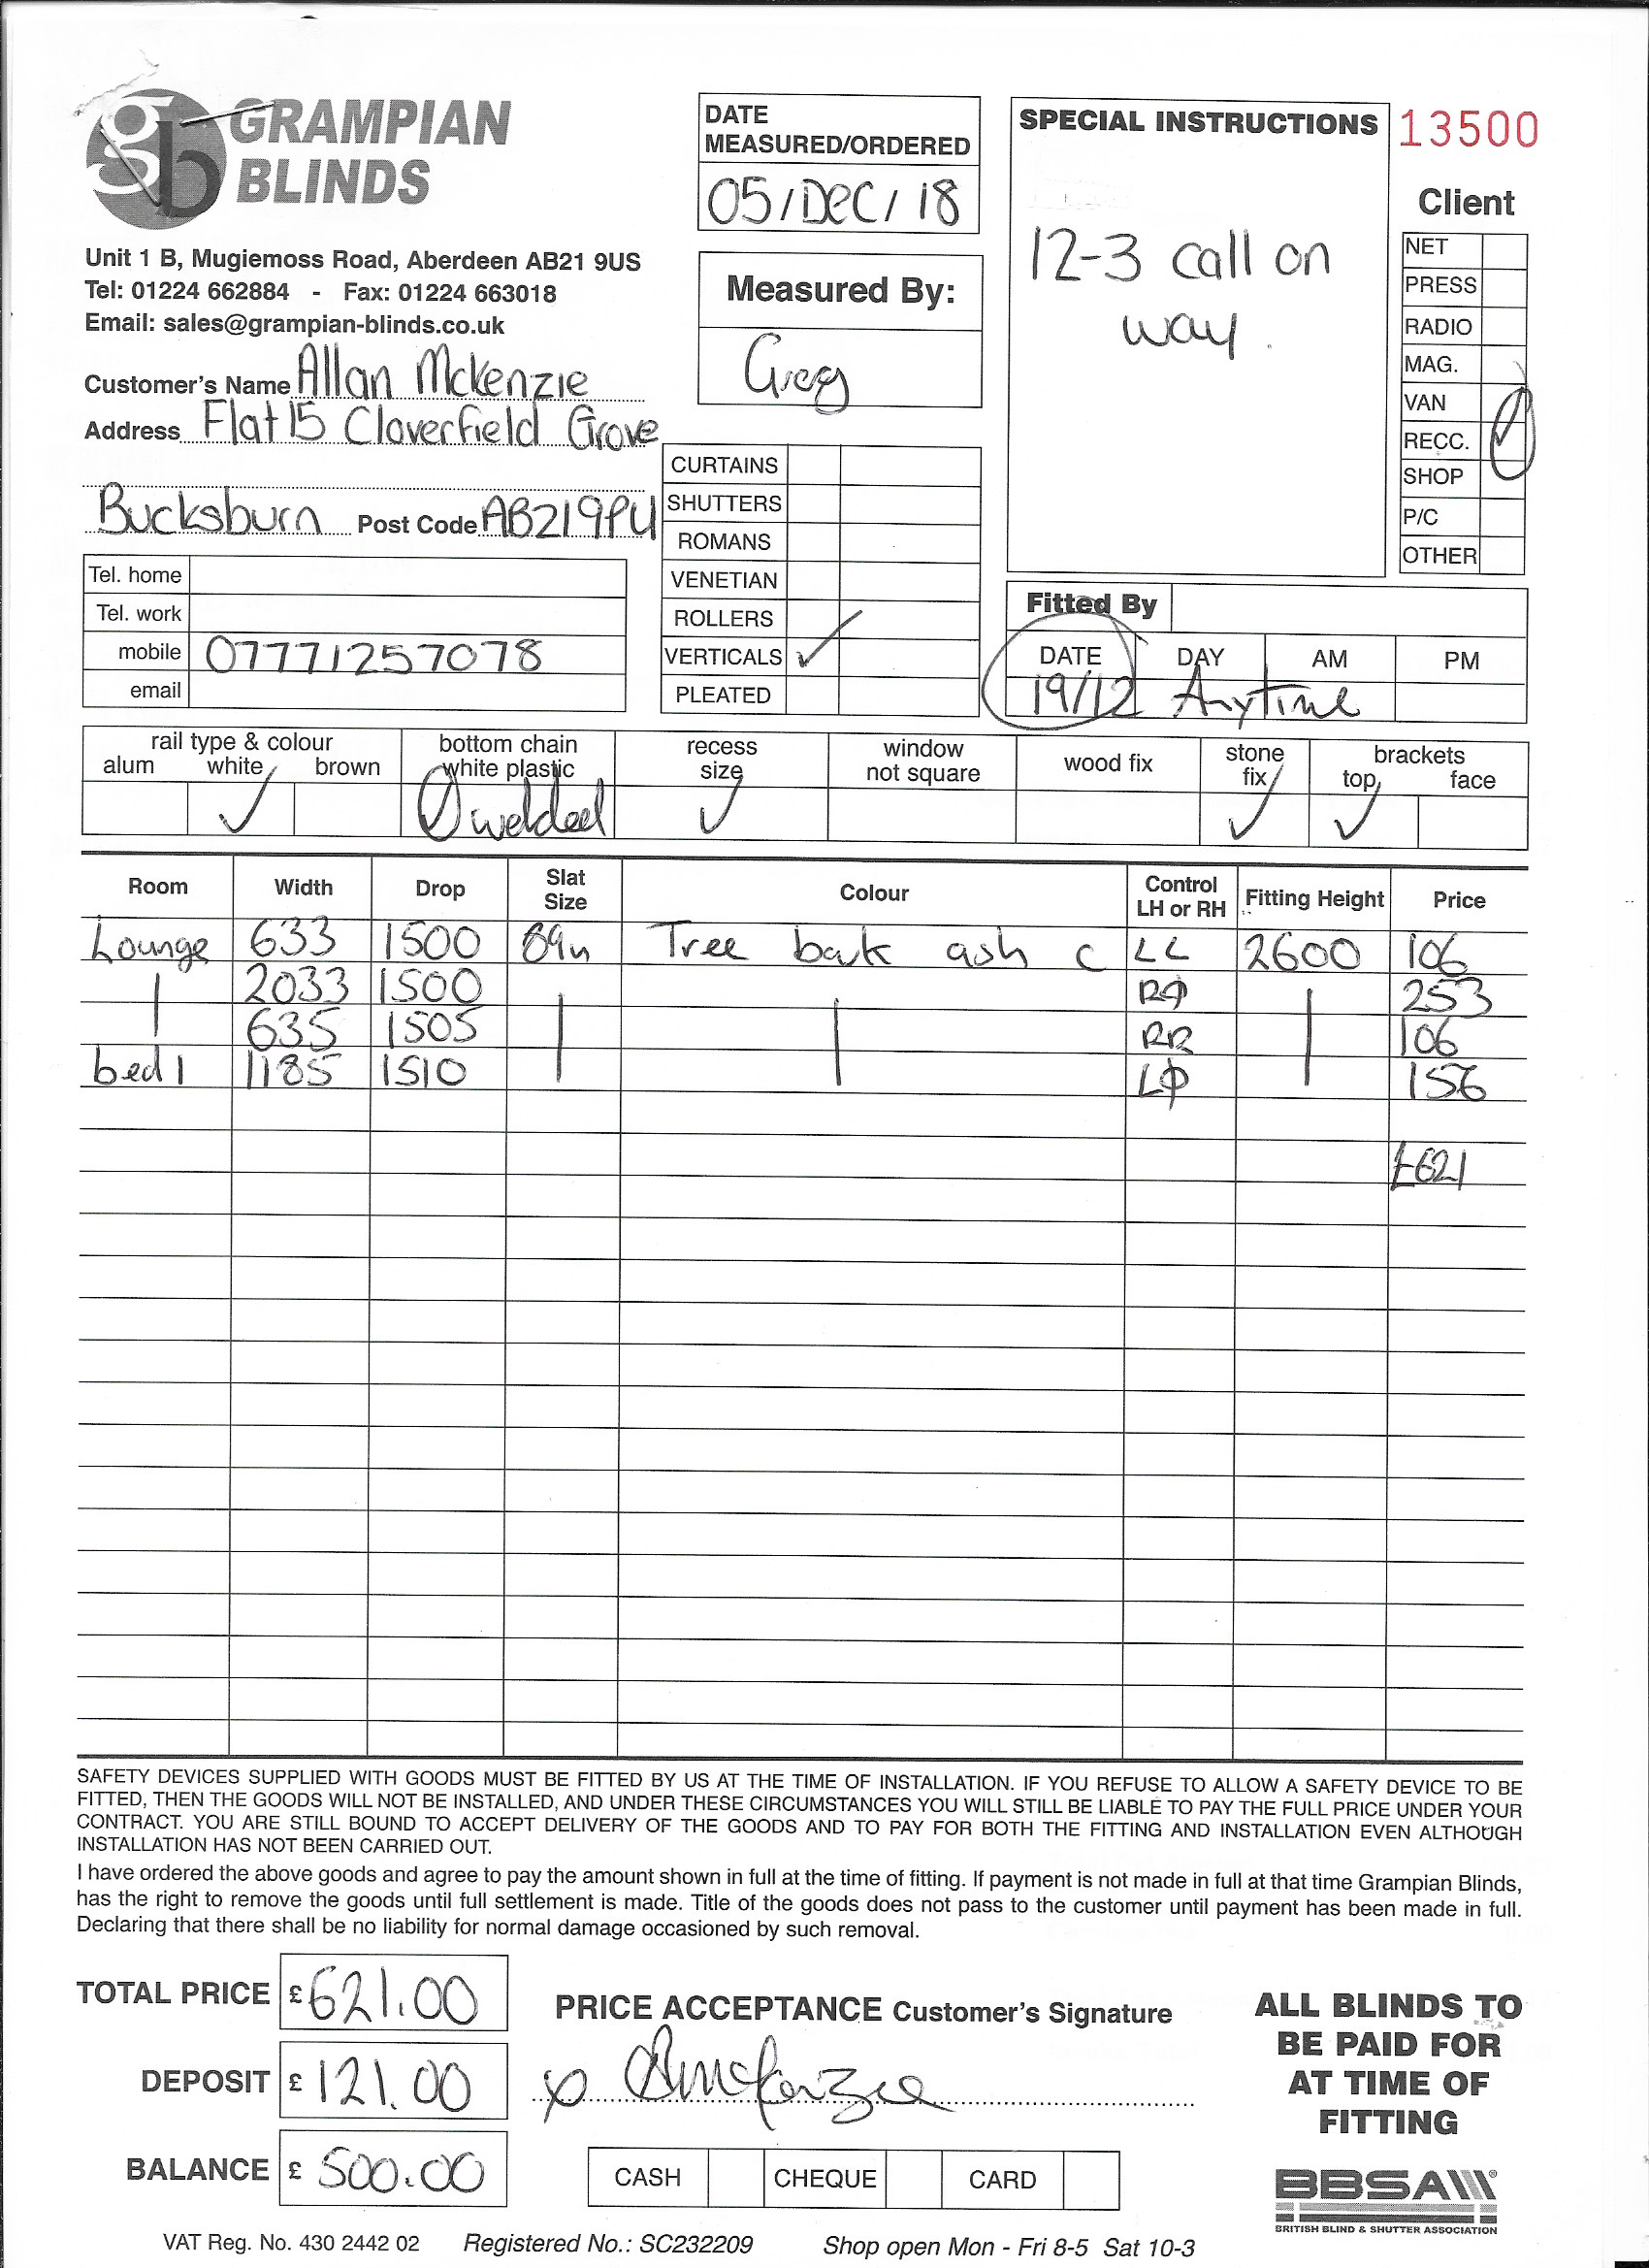 gb GRAMPIAN
BLINDS
Unit 1 B, Mugiemoss Road, Aberdeen AB21 9US
Tel: 01224 662884 - Fax: 01224 663018
Email: sales@grampian-blinds.co.uk
Customer's Name Allan McKenzie
Address Flat 15 Cloverfield Grove
Bucksburn Post Code AB219PU
Tel. home
Tel. work
mobile 07771257078
email
DATE
MEASURED/ORDERED
05/DEC/18
Measured By:
Greg
CURTAINS
SHUTTERS
ROMANS
VENETIAN
ROLLERS
VERTICALS ✓
PLEATED
SPECIAL INSTRUCTIONS
12-3 call on
way.
13500
Client
NET
PRESS
RADIO
MAG.
VAN
RECC. ✓
SHOP
P/C
OTHER
Fitted By
DATE DAY AM PM
19/12 Anytime
rail type & colour bottom chain recess window wood fix stone brackets
alum white brown white plastic size not square fix top face
✓ welded ✓ ✓ ✓
Room Width Drop Slat Size Colour Control LH or RH Fitting Height Price
Lounge 633 1500 89m Tree bark ash c LL 2600 106
2033 1500 253
635 1505 RR 106
bed 1 1185 1510 156
£621
SAFETY DEVICES SUPPLIED WITH GOODS MUST BE FITTED BY US AT THE TIME OF INSTALLATION. IF YOU REFUSE TO ALLOW A SAFETY DEVICE TO BE
FITTED, THEN THE GOODS WILL NOT BE INSTALLED, AND UNDER THESE CIRCUMSTANCES YOU WILL STILL BE LIABLE TO PAY THE FULL PRICE UNDER YOUR
CONTRACT. YOU ARE STILL BOUND TO ACCEPT DELIVERY OF THE GOODS AND TO PAY FOR BOTH THE FITTING AND INSTALLATION EVEN ALTHOUGH
INSTALLATION HAS NOT BEEN CARRIED OUT.
I have ordered the above goods and agree to pay the amount shown in full at the time of fitting. If payment is not made in full at that time Grampian Blinds,
has the right to remove the goods until full settlement is made. Title of the goods does not pass to the customer until payment has been made in full.
Declaring that there shall be no liability for normal damage occasioned by such removal.
TOTAL PRICE £ 621.00
DEPOSIT £ 121.00
BALANCE £ 500.00
PRICE ACCEPTANCE Customer's Signature
x AMcKenzie
CASH CHEQUE CARD
ALL BLINDS TO
BE PAID FOR
AT TIME OF
FITTING
BBSA
BRITISH BLIND & SHUTTER ASSOCIATION
VAT Reg. No. 430 2442 02 Registered No.: SC232209 Shop open Mon - Fri 8-5 Sat 10-3